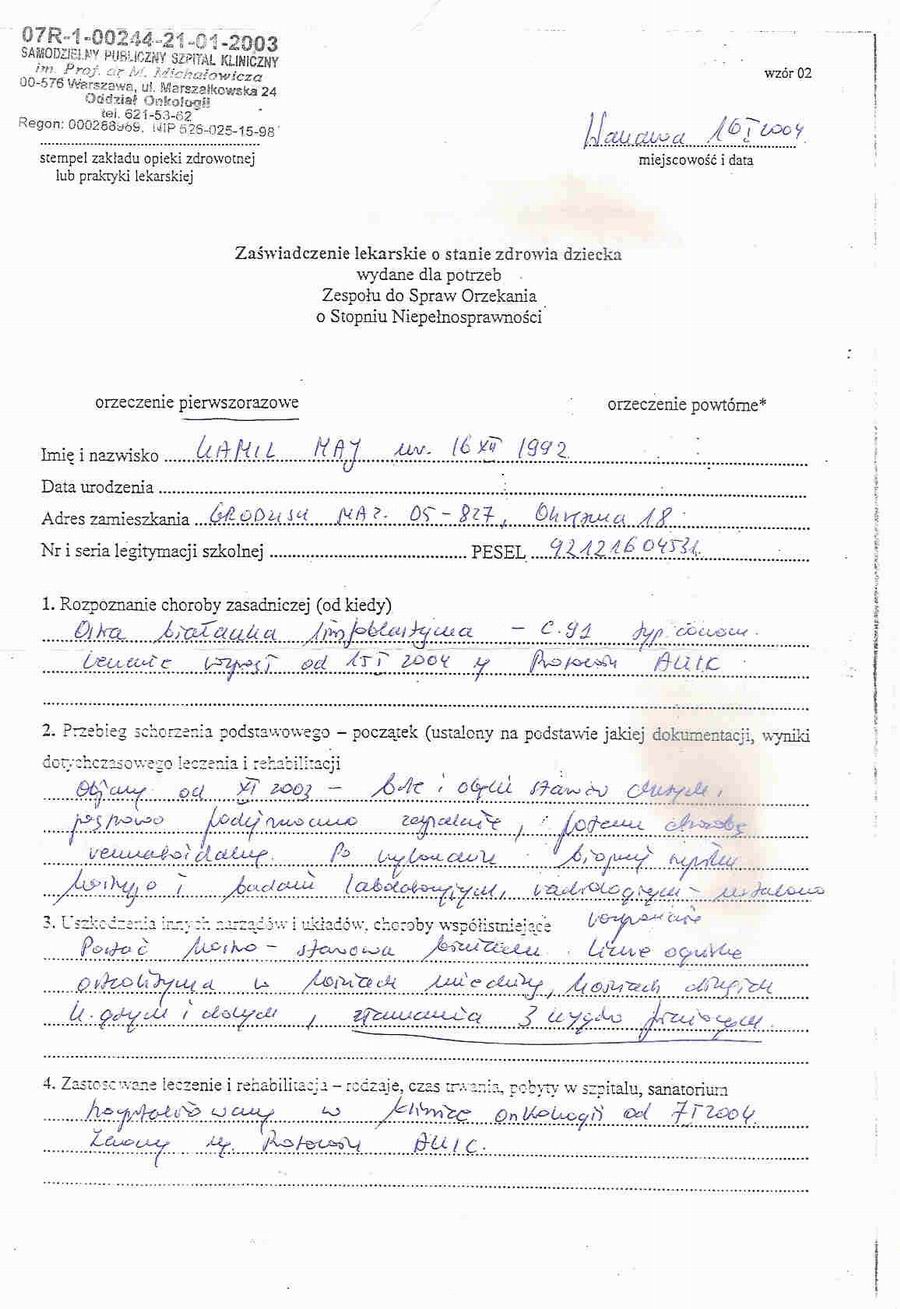 07R-1-00244-21-01-2003
SAMODZIELNY PUBLICZNY SZPITAL KLINICZNY
im. Prof. dr M. Michałowicza
00-576 Warszawa, ul. Marszałkowska 24
Oddział Onkologii
tel. 621-53-62
Regon: 000288969. NIP 526-025-15-98
wzór 02
Warszawa 16 I 2004
stempel zakładu opieki zdrowotnej
lub praktyki lekarskiej
miejscowość i data
Zaświadczenie lekarskie o stanie zdrowia dziecka
wydane dla potrzeb
Zespołu do Spraw Orzekania
o Stopniu Niepełnosprawności
orzeczenie pierwszorazowe orzeczenie powtórne*
Imię i nazwisko KAMIL MAJ ur. 16 XII 1992
Data urodzenia
Adres zamieszkania GRODZISK MAZ. 05-827, 18
Nr i seria legitymacji szkolnej PESEL 92121604531
1. Rozpoznanie choroby zasadniczej (od kiedy)
Ostra białaczka limfoblastyczna – C.91
od 15 I 2004
2. Przebieg schorzenia podstawowego – początek (ustalony na podstawie jakiej dokumentacji, wyniki
dotychczasowego leczenia i rehabilitacji
Objawy od XI 2003 – bóle i obrzęki stawów
podejrzewano zapalenie, potem chorobę
reumatoidalną. Po wykonaniu biopsji szpiku
kostnego i badań laboratoryjnych, radiologicznych – ustalono
rozpoznanie
3. Uszkodzenia innych narządów i układów, choroby współistniejące
Postać kostno-stawowa białaczki. Liczne ogniska
osteolityczne w kościach miednicy, kościach długich
k. górnych i dolnych, złamania 3 kręgów piersiowych.
4. Zastosowane leczenie i rehabilitacja – rodzaje, czas trwania, pobyty w szpitalu, sanatorium
hospitalizowany w klinice onkologii od 7 I 2004
Leczony wg.